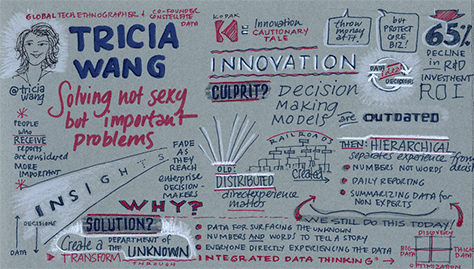 GLOBAL TECH ETHNOGRAPHER + CO-FOUNDER
CONSTELLATE
DATA
TRICIA
WANG
@tricia
wang
Solving not sexy
but important
problems
* PEOPLE
who
RECEIVE
reports
are considered
MORE
IMPORTANT
*
INSIGHTS
FADE
AS
THEY
REACH
enterprise
DECISION-
MAKERS
DECISIONS
WHY?
SOLUTION?
Create a DEPARTMENT of
the UNKNOWN
TRANSFORM THROUGH INTEGRATED DATA THINKING
KODAK
K = Innovation
CAUTIONARY
TALE
throw
money
at it!
but
PROTECT
CORE
BIZ!
65%
DECLINE
in R+D
INVESTMENT
ROI
INNOVATION
DATA
Ideas
DECISIONS
CULPRIT?
Decision
Making
MODELS are OUTDATED
RAILROADS
Created
OLD:
DISTRIBUTED
direct experience
matters
THEN: HIERARCHICAL
separates experience from decisions
• NUMBERS NOT WORDS
• DAILY REPORTING
• SUMMARIZING DATA for
NON EXPERTS
WE STILL DO THIS TODAY!
• DATA FOR SURFACING THE UNKNOWN
• NUMBERS AND WORDS TO TELL A STORY
• EVERYONE DIRECTLY EXPERIENCING THE DATA
DISCOVERY
BIG
DATA
THICK
DATA
OPTIMIZATION